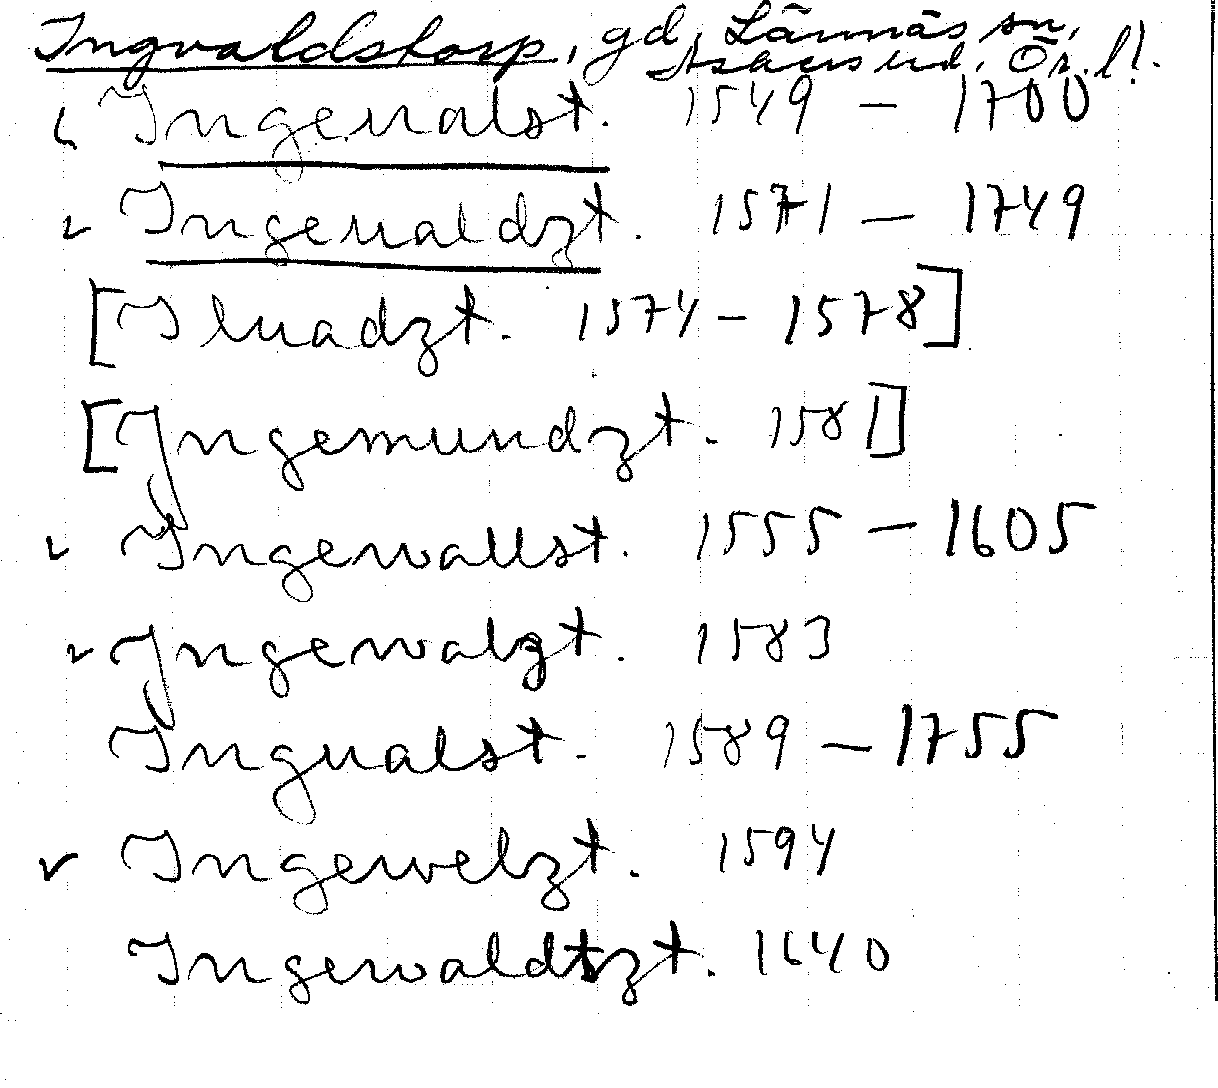 Ingvaldstorp, gd, Lännäs sn,
Askers hd, Ör. l!
Ingeualst. 1549 – 1700
Ingeualdzt. 1571 – 1749
[Iluadzt. 1574 – 1578]
[Jngemundzt. 1581]
Ingewallst. 1555 – 1605
Jngewalzt. 1583
Ingualst. 1589 – 1755
Ingewelzt. 1594
Ingewaldtzt. 1640